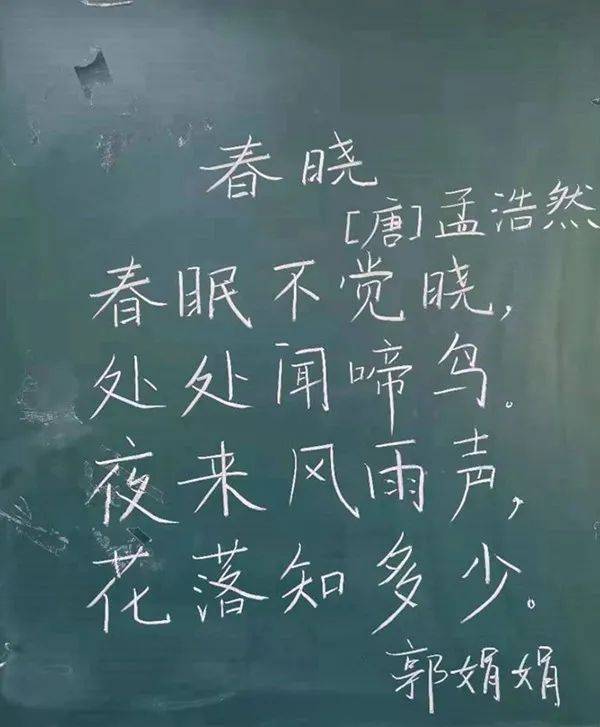 春晓
[唐]孟浩然
春眠不觉晓,
处处闻啼鸟。
夜来风雨声,
花落知多少。
郭娟娟